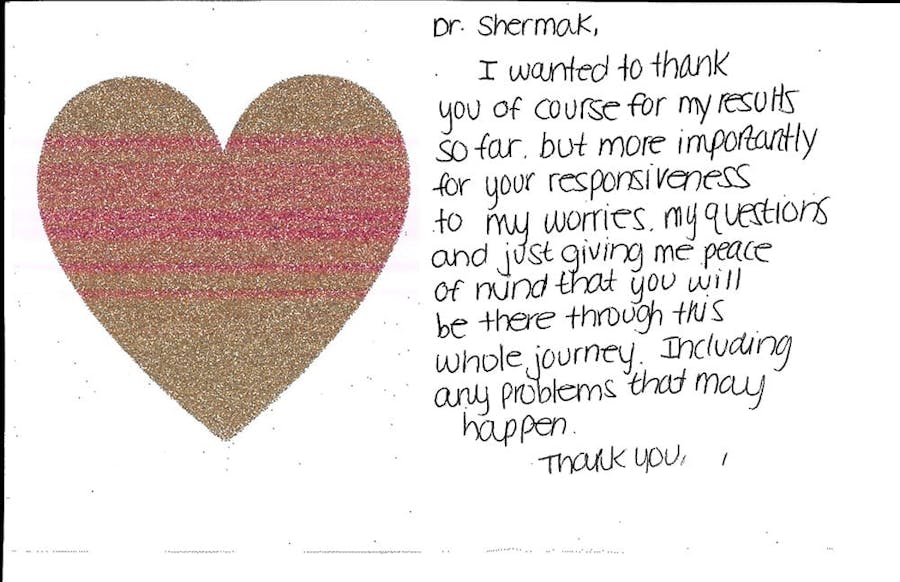 Dr. Shermak,
I wanted to thank
you of course for my results
so far, but more importantly
for your responsiveness
to my worries, my questions
and just giving me peace
of mind that you will
be there through this
whole journey. Including
any problems that may
happen.
Thank you,